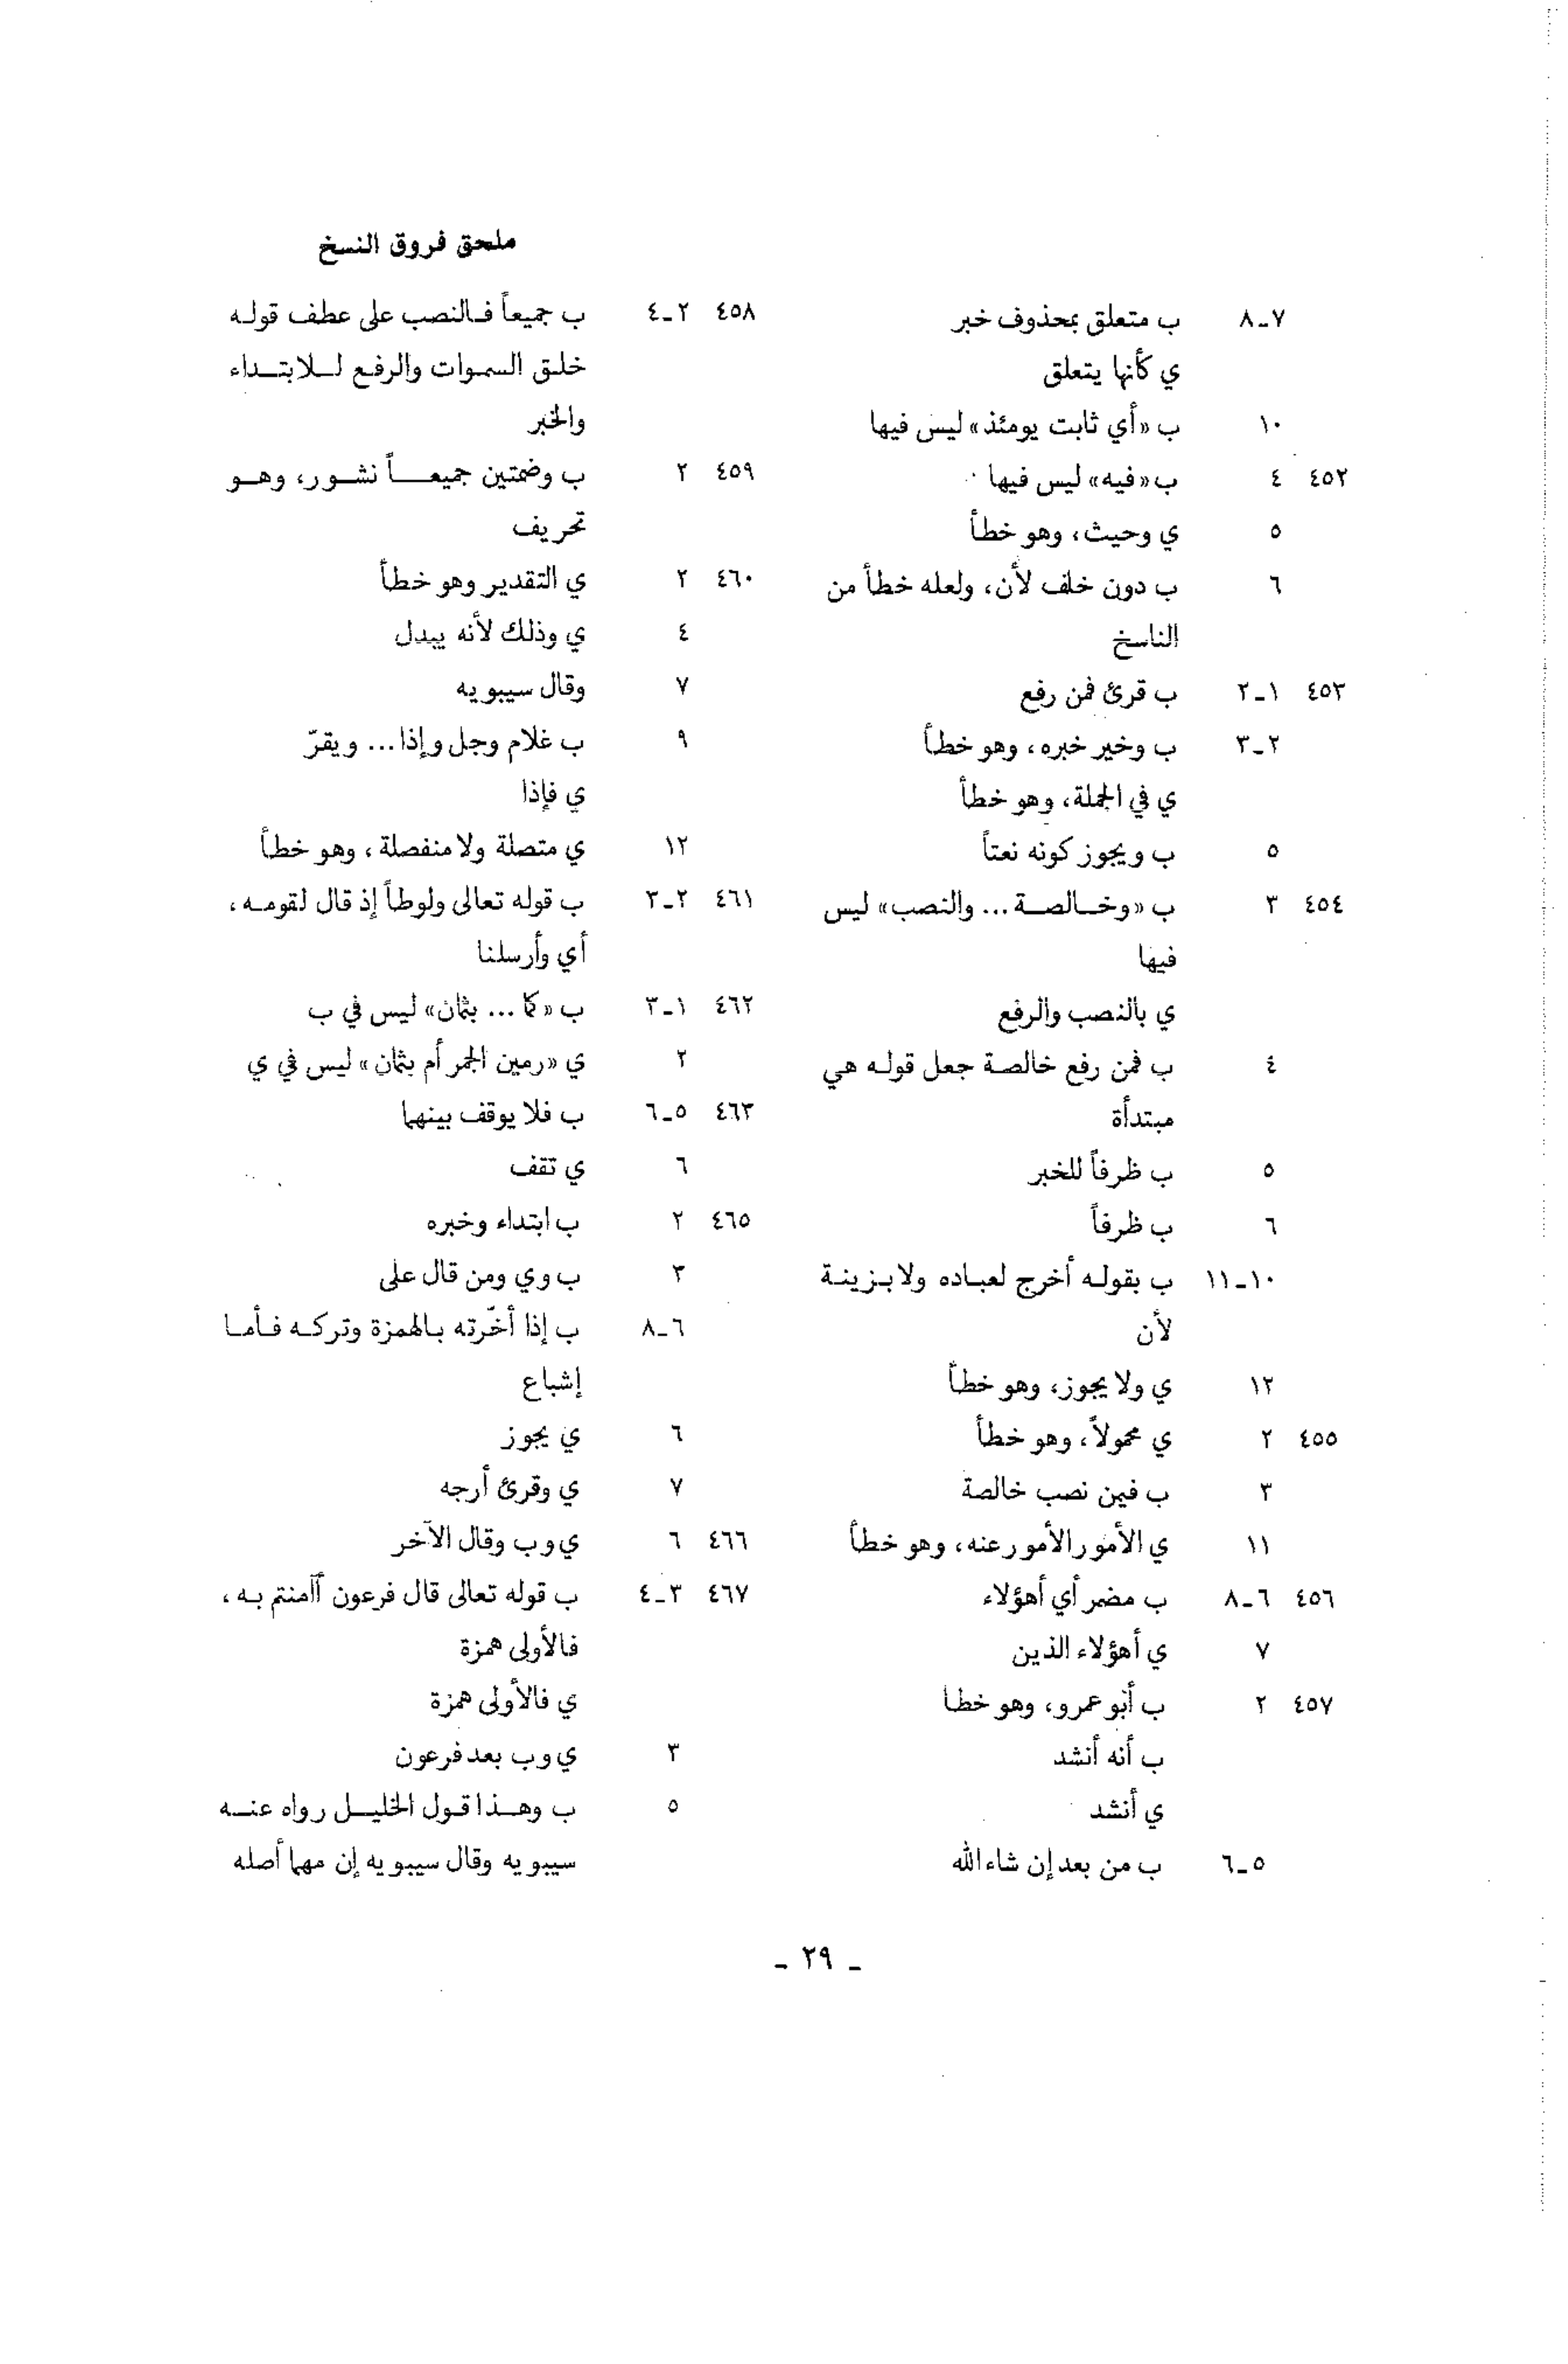 ملحق فروق النسخ
٧ـ٨ ب متعلق بمحذوف خبر
ي كأنها يتعلق
١٠ ب «أي ثابت يومئذ» ليس فيها
٤٥٢ ٤ ب «فيه» ليس فيها
٥ ي وحيث، وهو خطأ
٦ ب دون خلف لأن، ولعله خطأ من
الناسخ
٤٥٣ ١ـ٢ ب قرئ فمن رفع
٢ـ٣ ب وخير خبره، وهو خطأ
ي في الجملة، وهو خطأ
٥ ب ويجوز كونه نعتاً
٤٥٤ ٣ ب «وخالصة ... والنصب» ليس
فيها
ي بالنصب والرفع
٤ ب فمن رفع خالصة جعل قوله هي
مبتدأة
٥ ب ظرفاً للخبر
٦ ب ظرفاً
١٠ـ١١ ب بقوله أخرج لعباده ولا بزينة
لأن
١٢ ي ولا يجوز، وهو خطأ
٤٥٥ ٢ ي محمولاً، وهو خطأ
٣ ب فين نصب خالصة
١١ ي الأمور الأمور عنه، وهو خطأ
٤٥٦ ٦ـ٨ ب مضمر أي أهؤلاء
٧ ي أهؤلاء الذين
٤٥٧ ٢ ب أبو عمرو، وهو خطأ
ب أنه أنشد
ي أنشد
٥ـ٦ ب من بعد إن شاء الله
٤٥٨ ٢ـ٤ ب جميعاً فالنصب على عطف قوله
خلق السموات والرفع للابتداء
والخبر
٤٥٩ ٢ ب وضمتين جميعاً نشور، وهو
تحريف
٤٦٠ ٢ ي التقدير وهو خطأ
٤ ي وذلك لأنه يبدل
٧ وقال سيبويه
٩ ب غلام وجل وإذا... ويقرّ
ي فإذا
١٢ ي متصلة ولا منفصلة، وهو خطأ
٤٦١ ٢ـ٣ ب قوله تعالى ولوطاً إذ قال لقومه،
أي وأرسلنا
٤٦٢ ١ـ٣ ب «كما ... بثمان» ليس في ب
٢ ي «رمين الجمر أم بثمان» ليس في ي
٤٦٣ ٥ـ٦ ب فلا يوقف بينهما
٦ ي تقف
٤٦٥ ٢ ب ابتداء وخبره
٣ ب وي ومن قال على
٦ـ٨ ب إذا أخّرته بالهمزة وتركه فأما
إشباع
٦ ي يجوز
٧ ي وقرئ أرجه
٤٦٦ ٦ ي وب وقال الآخر
٤٦٧ ٣ـ٤ ب قوله تعالى قال فرعون أآمنتم به،
فالأولى همزة
ي فالأولى همزة
٣ ي وب بعد فرعون
٥ ب وهذا قول الخليل رواه عنه
سيبويه وقال سيبويه إن مهما أصله
ـ ٢٩ ـ